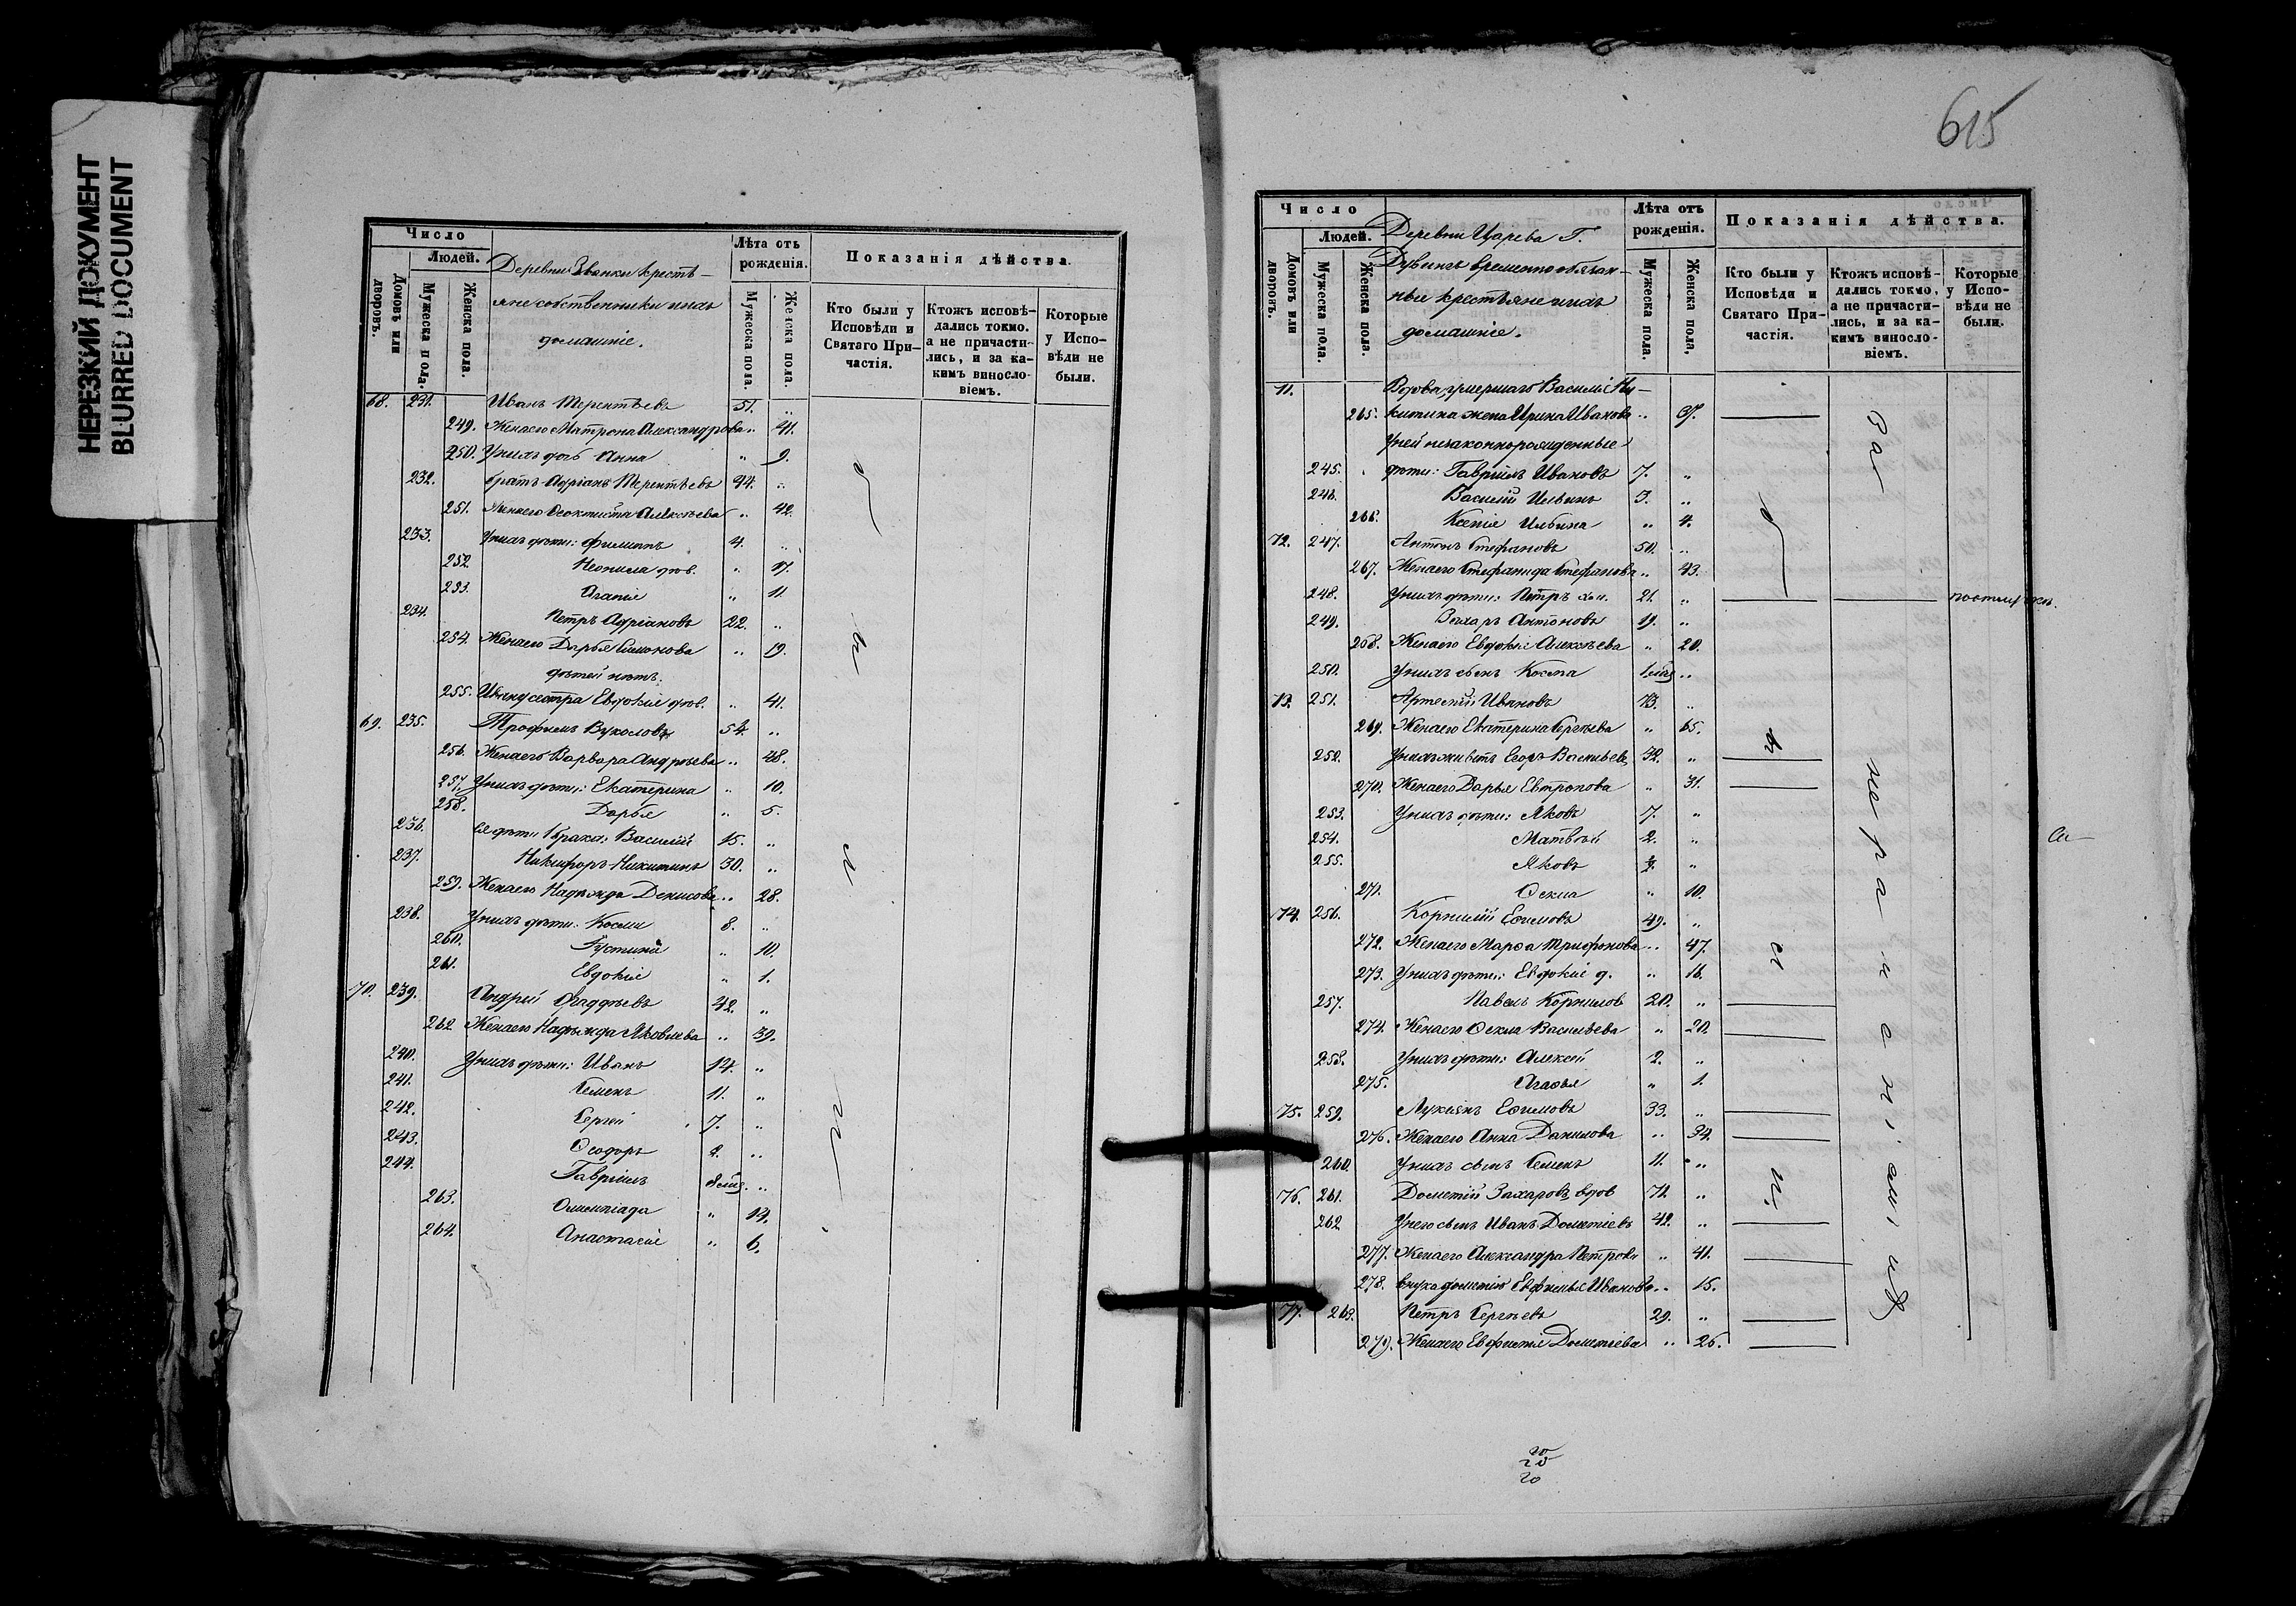 НЕРЕЗКИЙ ДОКУМЕНТ
BLURRED DOCUMENT
Число
Людей.
Домовъ или дворовъ.
Мужеска пола.
Женска пола.
Деревни Званки кресть-
яне собственники и ихъ
домашніе.
Лѣта отъ рожденія.
Мужеска пола.
Женска пола.
Показанія дѣйства.
Кто были у Исповѣди и Святаго Причастія.
Ктожъ исповѣдались токмо. а не причастились, и за какимъ винословіемъ.
Которые у Исповѣди не были.
68. 231. Иванъ Терентьевъ 51. „
249. Жена его Матрона Александрова „ 41.
250. У нихъ дочь Анна „ 9.
232. братъ Адріанъ Терентьевъ 44. „
251. Жена его Ѳеоктиста Алексѣева „ 42.
233. У нихъ дѣти: Филиппъ 4. „
252. Неонила дѣв. „ 17.
253. Агапія „ 11.
234. Петръ Адріановъ 22. „
254. Жена его Дарья Симонова „ 19.
дѣтей нѣтъ.
255. Ивану сестра Евдокія дѣв. „ 41.
69. 235. Трофимъ Вуколовъ 54. „
256. Жена его Варвара Андреева „ 48.
257. У нихъ дѣти: Екатерина „ 10.
258. Дарья „ 5.
236. 1 брака: Василій 15. „
237. Никифоръ Никитинъ 30. „
259. Жена его Надежда Денисова „ 28.
238. У нихъ дѣти: Косма 8. „
260. Іустинія „ 10.
261. Евдокія „ 1.
70. 239. Андрей Ѳаддѣевъ 42. „
262. Жена его Надежда Яковлева „ 39.
240. У нихъ дѣти: Иванъ 14. „
241. Семенъ 11. „
242. Сергій 7. „
243. Ѳеодоръ 2. „
244. Гавріилъ „
263. Олимпіада „ 14.
264. Анастасія „ 6.
615
Число
Людей.
Домовъ или дворовъ.
Мужеска пола.
Женска пола.
Деревни Царева Г.
временнообязан-
ные крестьяне и ихъ
домашніе.
Лѣта отъ рожденія.
Мужеска пола.
Женска пола,
Показанія дѣйства.
Кто были у Исповѣди и Святаго Причастія.
Ктожъ исповѣдались токмо, а не причастились, и за какимъ винословіемъ.
Которые у Исповѣди не были.
71. Вдова, умершаго Василія Ни-
265. китина жена Ирина Иванова „ 37.
У ней незаконнорожденные
245. дѣти: Гавріилъ Ивановъ 7. „
246. Василій Ильинъ 3. „
266. Ксенія Ильина „ 4.
72. 247. Антонъ Стефановъ 50. „
267. Жена его Стефанида Стефанова „ 43.
248. У нихъ дѣти: Петръ хол. 21. „
249. Захаръ Антоновъ 19. „
268. Жена его Евдокія Алексѣева „ 20.
250. У нихъ сынъ Косма „
73. 251. Артемій Ивановъ 73. „
269. Жена его Екатерина Сергѣева „ 65.
252. У нихъ живетъ Егоръ Васильевъ 32. „
270. Жена его Дарья Евтропова „ 31.
253. У нихъ дѣти: Яковъ 7. „
254. Матвѣй 2. „
255. Яковъ „
271. Ѳекла „ 10.
74. 256. Корнилій Ефимовъ 49. „
272. Жена его Марѳа Трифонова „ 47.
273. У нихъ дѣти: Евдокія д. „ 16.
257. Павелъ Корниловъ 20. „
274. Жена его Ѳекла Васильева „ 20.
258. У нихъ дѣти: Алексѣй 2. „
275. Агафья „ 1.
75. 259. Лукіянъ Ефимовъ 33. „
276. Жена его Анна Данилова „ 34.
260. У нихъ сынъ Семенъ 11. „
76. 261. Дометій Захаровъ вдов 71. „
262. У него сынъ Иванъ Дометіевъ 42. „
277. Жена его Александра Петрова „ 41.
278. внука Дометія Евфимья Иванова „ 15.
77. 263. Петръ Сергѣевъ 29. „
279. Жена его Евфимія Дометіева „ 26.
20
20
20